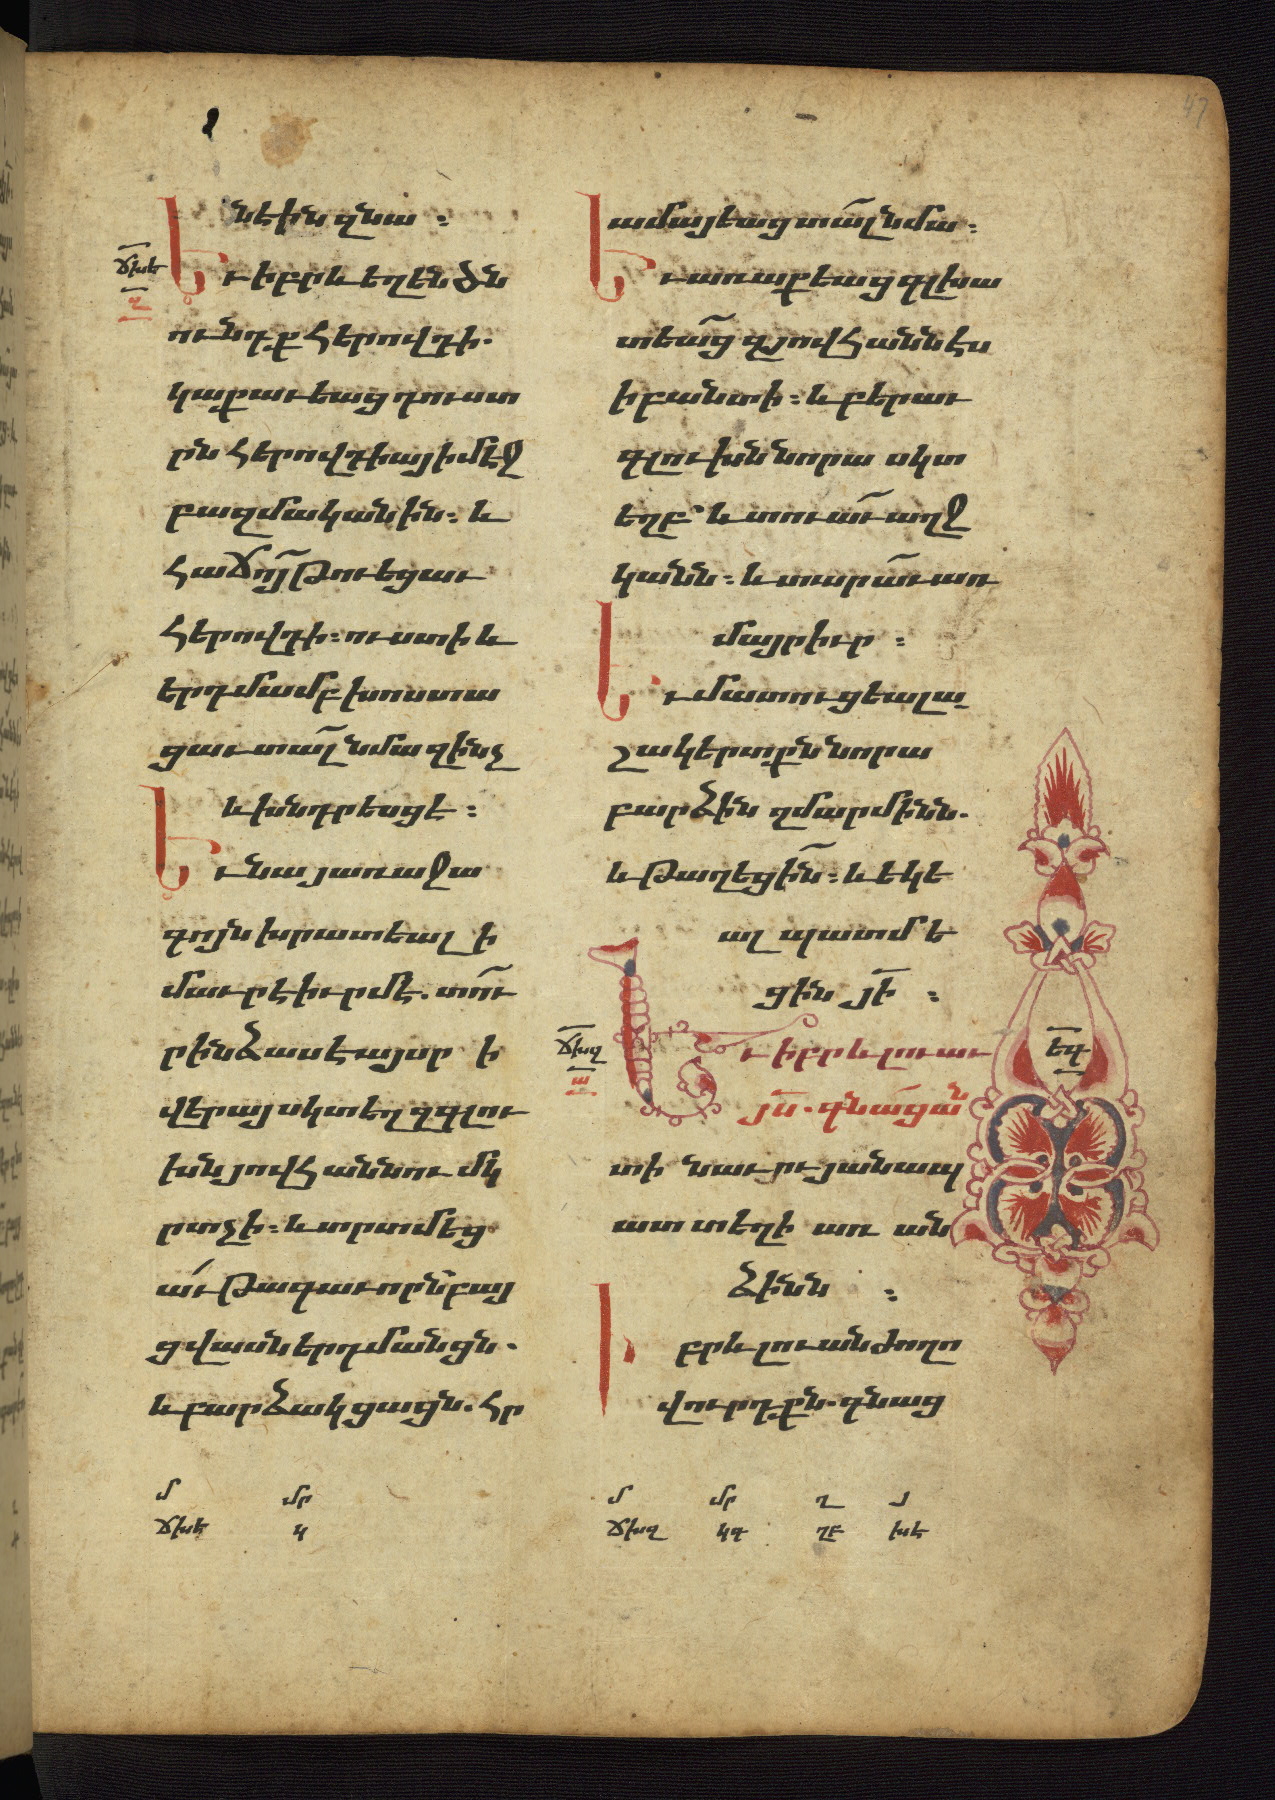 նէին զնա ։
ճխե
Եւ իբրև եղեն ծն
զ
ունդք հերովդի.
կաքաւեաց դուստ
րն հերովդիայ ի մէջ
բազմականին ։ և
հաճոյ թուեցաւ
հերովդի ։ ուստի և
երդմամբ խոստա
ցաւ տալ նմա զինչ
և խնդրեսցէ ։
Եւ նա յառաջա
գոյն խրատեալ ի
մաւրէ իւրմէ. տուր
ինձ ասէ այսր ի
վերայ սկտեղ զգլու
խն յովհաննու մկ
րտչի ։ և տրտմեց
աւ թագաւորն բայ
ց վասն երդմանցն.
և բարձակցացն. հր
մ մր
ճխե կ
ամայեաց տալ նմա ։
Եւ առաքեաց գլխա
տեաց զյովհաննէս
ի բանտի ։ և բերաւ
գլուխն նորա սկտ
եղբ և տուաւ աղջ
կանն ։ և տարաւ առ
մայր իւր ։
Եւ մատուցեալ ա
շակերտքն նորա
բարձին զմարմինն.
և թաղեցին ։ և եկե
ալ պատմե
ցին յի ։
ճխզ
Եւ իբրև լուաւ
եգ
ա
յս. գնաց ան
տի նաւու յանապ
ատ տեղի առ ան
ձինն ։
Իբրև լուան ժողո
վուրդքն. գնաց
մ մր ղ յ
ճխզ կգ ղբ խէ
47